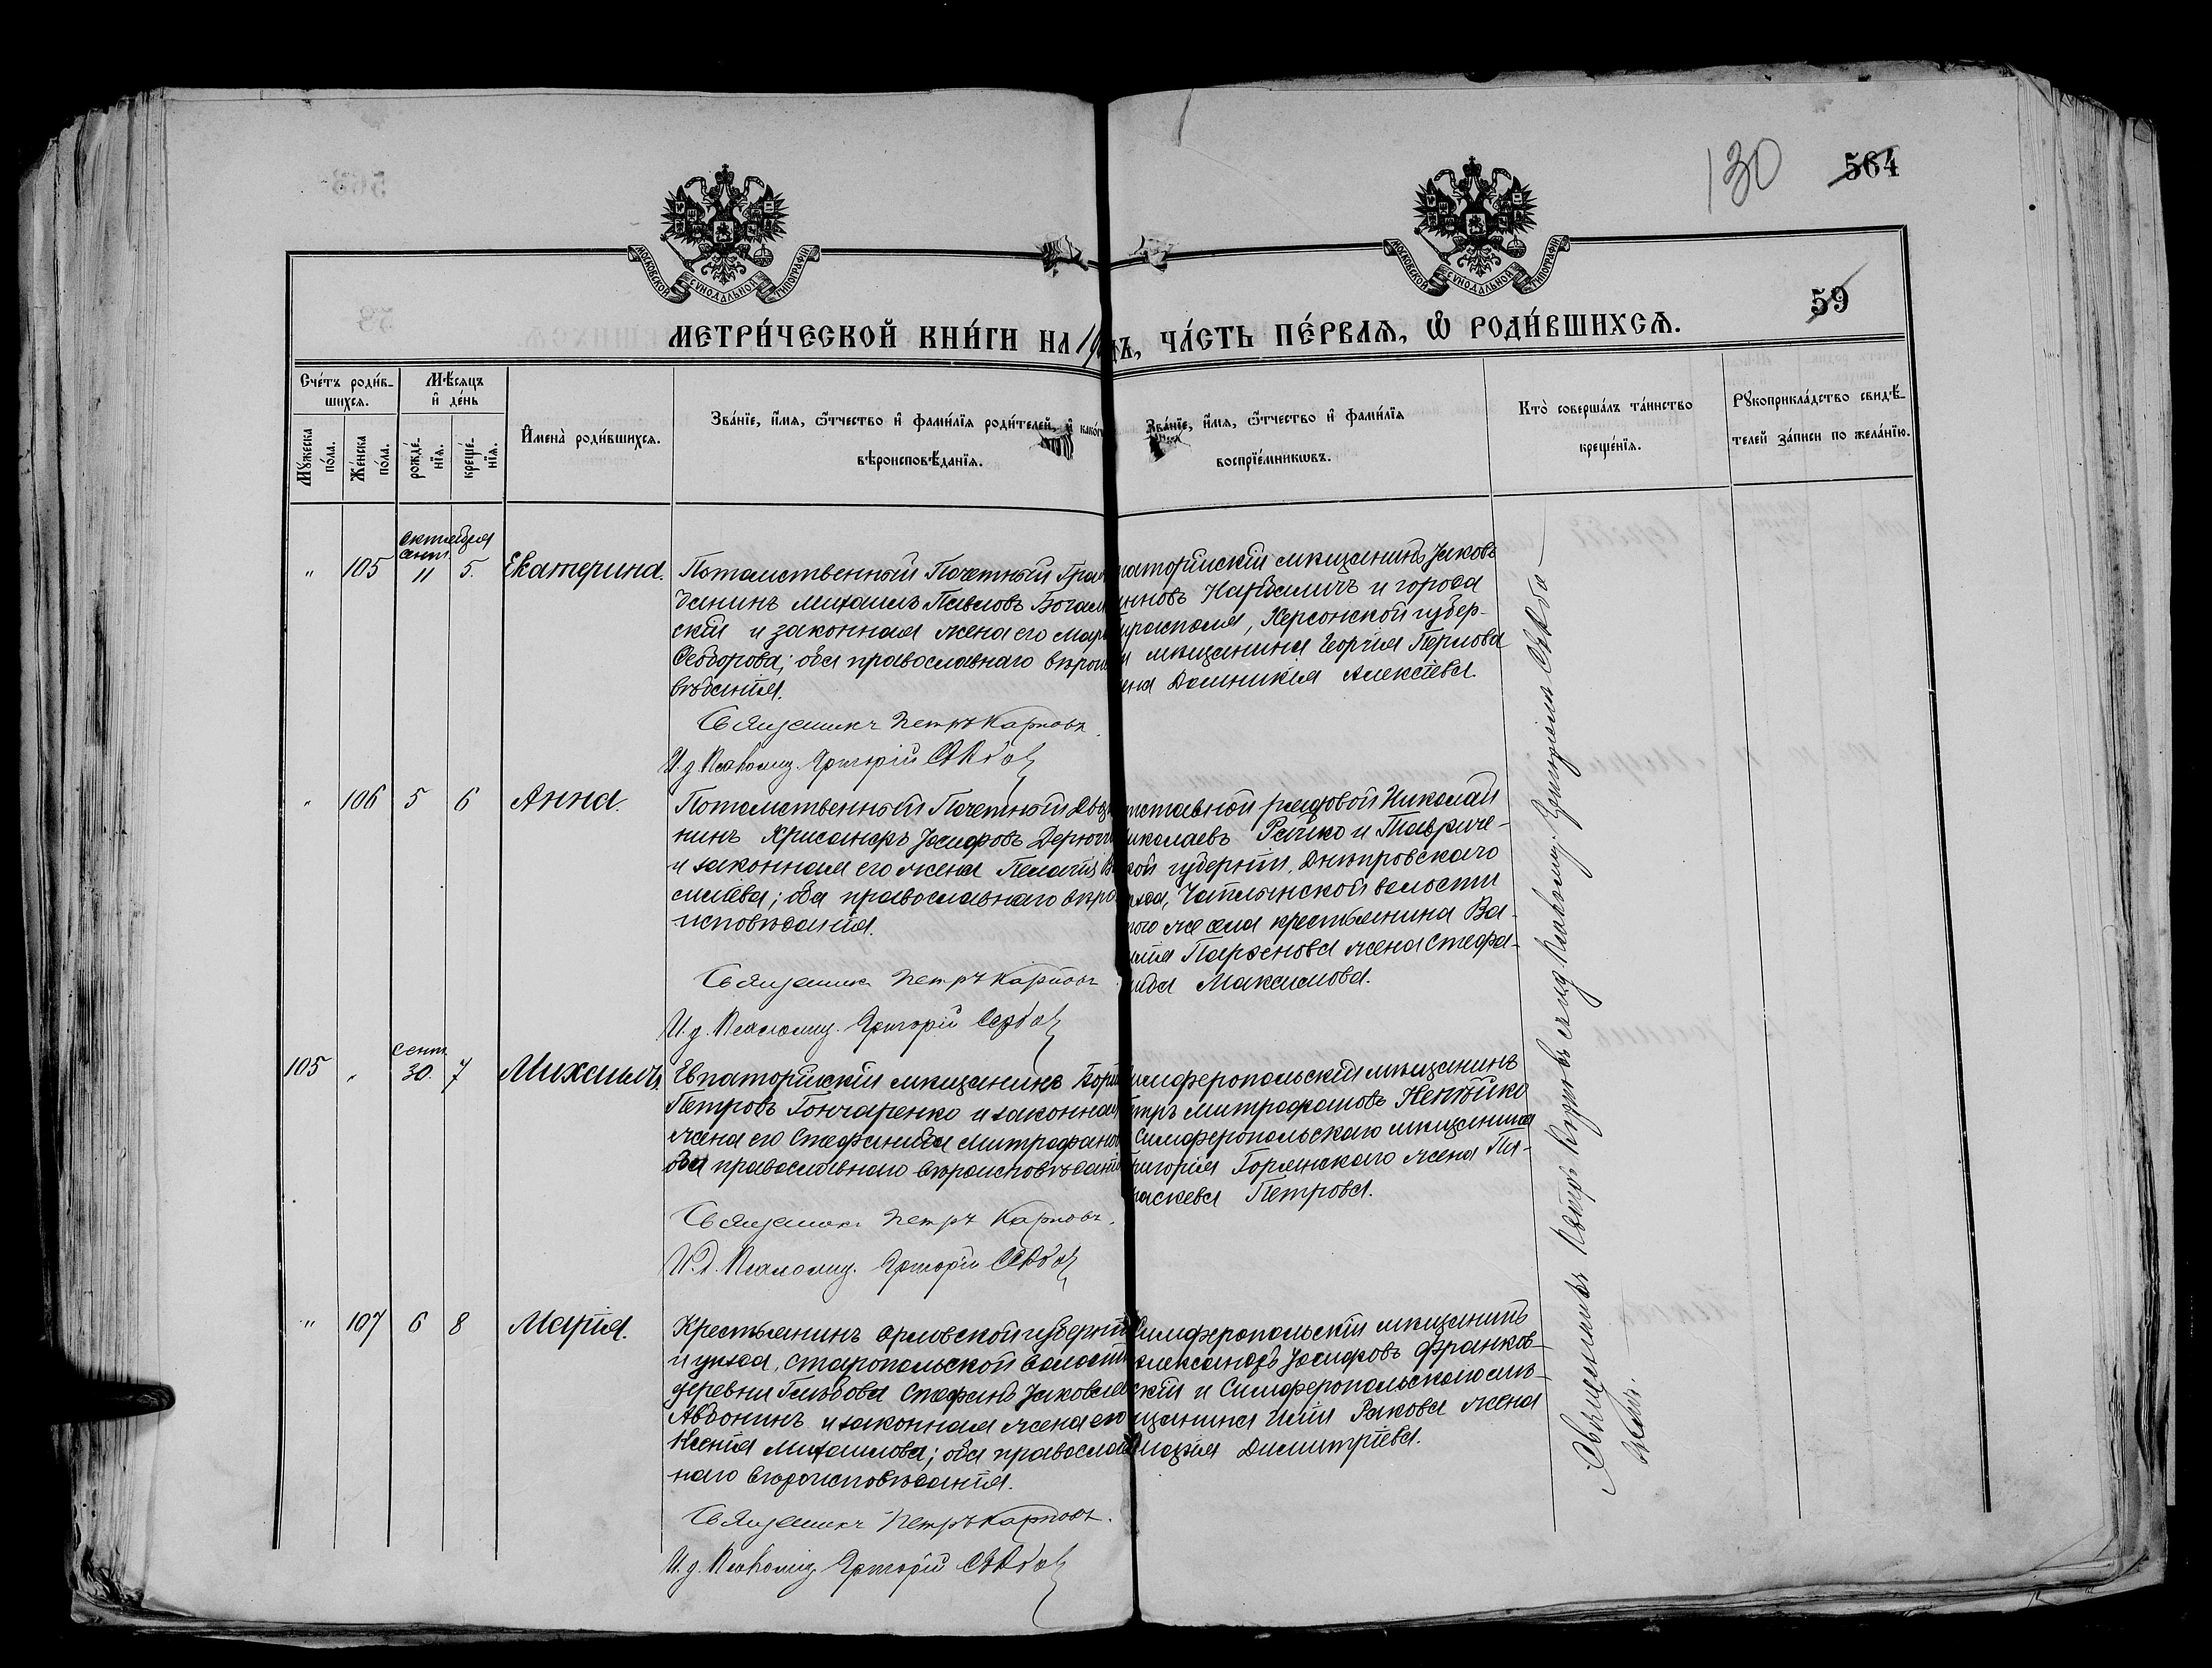 130
564
59
МОСКОВСКОЙ СѴНОДАЛЬНОЙ ТИПОГРАФІИ
МОСКОВСКОЙ СѴНОДАЛЬНОЙ ТИПОГРАФІИ
МЕТРИ́ЧЕСКОЙ КНИ́ГИ НА 19
ЧА́СТЬ ПЕ́РВАѦ, Ѡ РОДИ́ВШИХСѦ.
Сче́тъ роди́в-
шихсѧ.
Мꙋ́жеска по́ла.
Же́нска по́ла.
Мѣ́сѧцъ
и де́нь
рожде́-
нїѧ.
креще́-
нїѧ.
И҆мена̀ роди́вшихсѧ.
Зва́нїе, и҆́мѧ, ѻ҆́тчество и҆ фами́лїѧ роди́телей, и҆ како́гѡ
вѣроисповѣ́данїѧ.
Зва́нїе, и҆́мѧ, ѻ҆́тчество и҆ фами́лїѧ
воспрїе́мникѡвъ.
Кто̀ соверша́лъ та́инство
креще́нїѧ.
Рꙋкоприкла́дство свидѣ́-
телей за́писи по жела́нїю.
Октября
Сент.
" 105 11 5. Екатерина.
Потомственный Почетный Граж
данинъ Михаилъ Павловъ Богам
скій и законная жена его Мар
Ѳеодорова; оба православнаго вѣроис
вѣданія.
Священникъ Петръ Карповъ.
И. д. Псаломщ. Григорій
паторійскій мѣщанинъ Іаковъ
и города
располя, Херсонской губер-
и мѣщанина Георгія Перлова
ена Домникія Алексіева.
" 106 5 6 Анна.
Потомственный Почетный
нинъ Іосифовъ
и законная его жена Пелагія Ва
силіева; оба православнаго вѣро
исповѣданія.
Священникъ Петръ Карповъ
И. д. Псаломщ. Григорій
тставной рядовой Николай
иколаевъ Рачко и Тавриче-
кой губерніи, Днѣпровскаго
ѣзда, волости
того же села крестьянина Ва-
илія Парѳенова жена Стефа-
ида Максимова.
Сент.
105 " 30. 7 Михаилъ.
Евпаторійскій мѣщанинъ Бори
Петровъ Гончаренко и законная
жена его Стефанида Митрофанов
оба православнаго вѣроисповѣданія
Священникъ Петръ Карповъ.
И. д. Псаломщ. Григорій
имферопольскій мѣщанинъ
етръ Митрофановъ
Симферопольскаго мѣщанина
ригорія Горлинскаго жена Па-
раскева Петрова.
" 107 6 8 Марія.
Крестьянинъ Орловской губерніи
и уѣзда, Старопольской волости
деревни Глѣбова Стефанъ Іаковлев
Авдонинъ и законная жена его
Ксенія Михаилова; оба православ
наго вѣроисповѣданія.
Священникъ Петръ Карповъ.
И. д. Псаломщ. Григорій
Симферопольскій мѣщанинъ
Александръ Іосифовъ Франков-
скій и Симферопольскаго мѣ-
щанина Иліи Ракова жена
Марія Димитріева.
Священникъ Петръ Карповъ съ и. д. Псаломщ. Григоріемъ